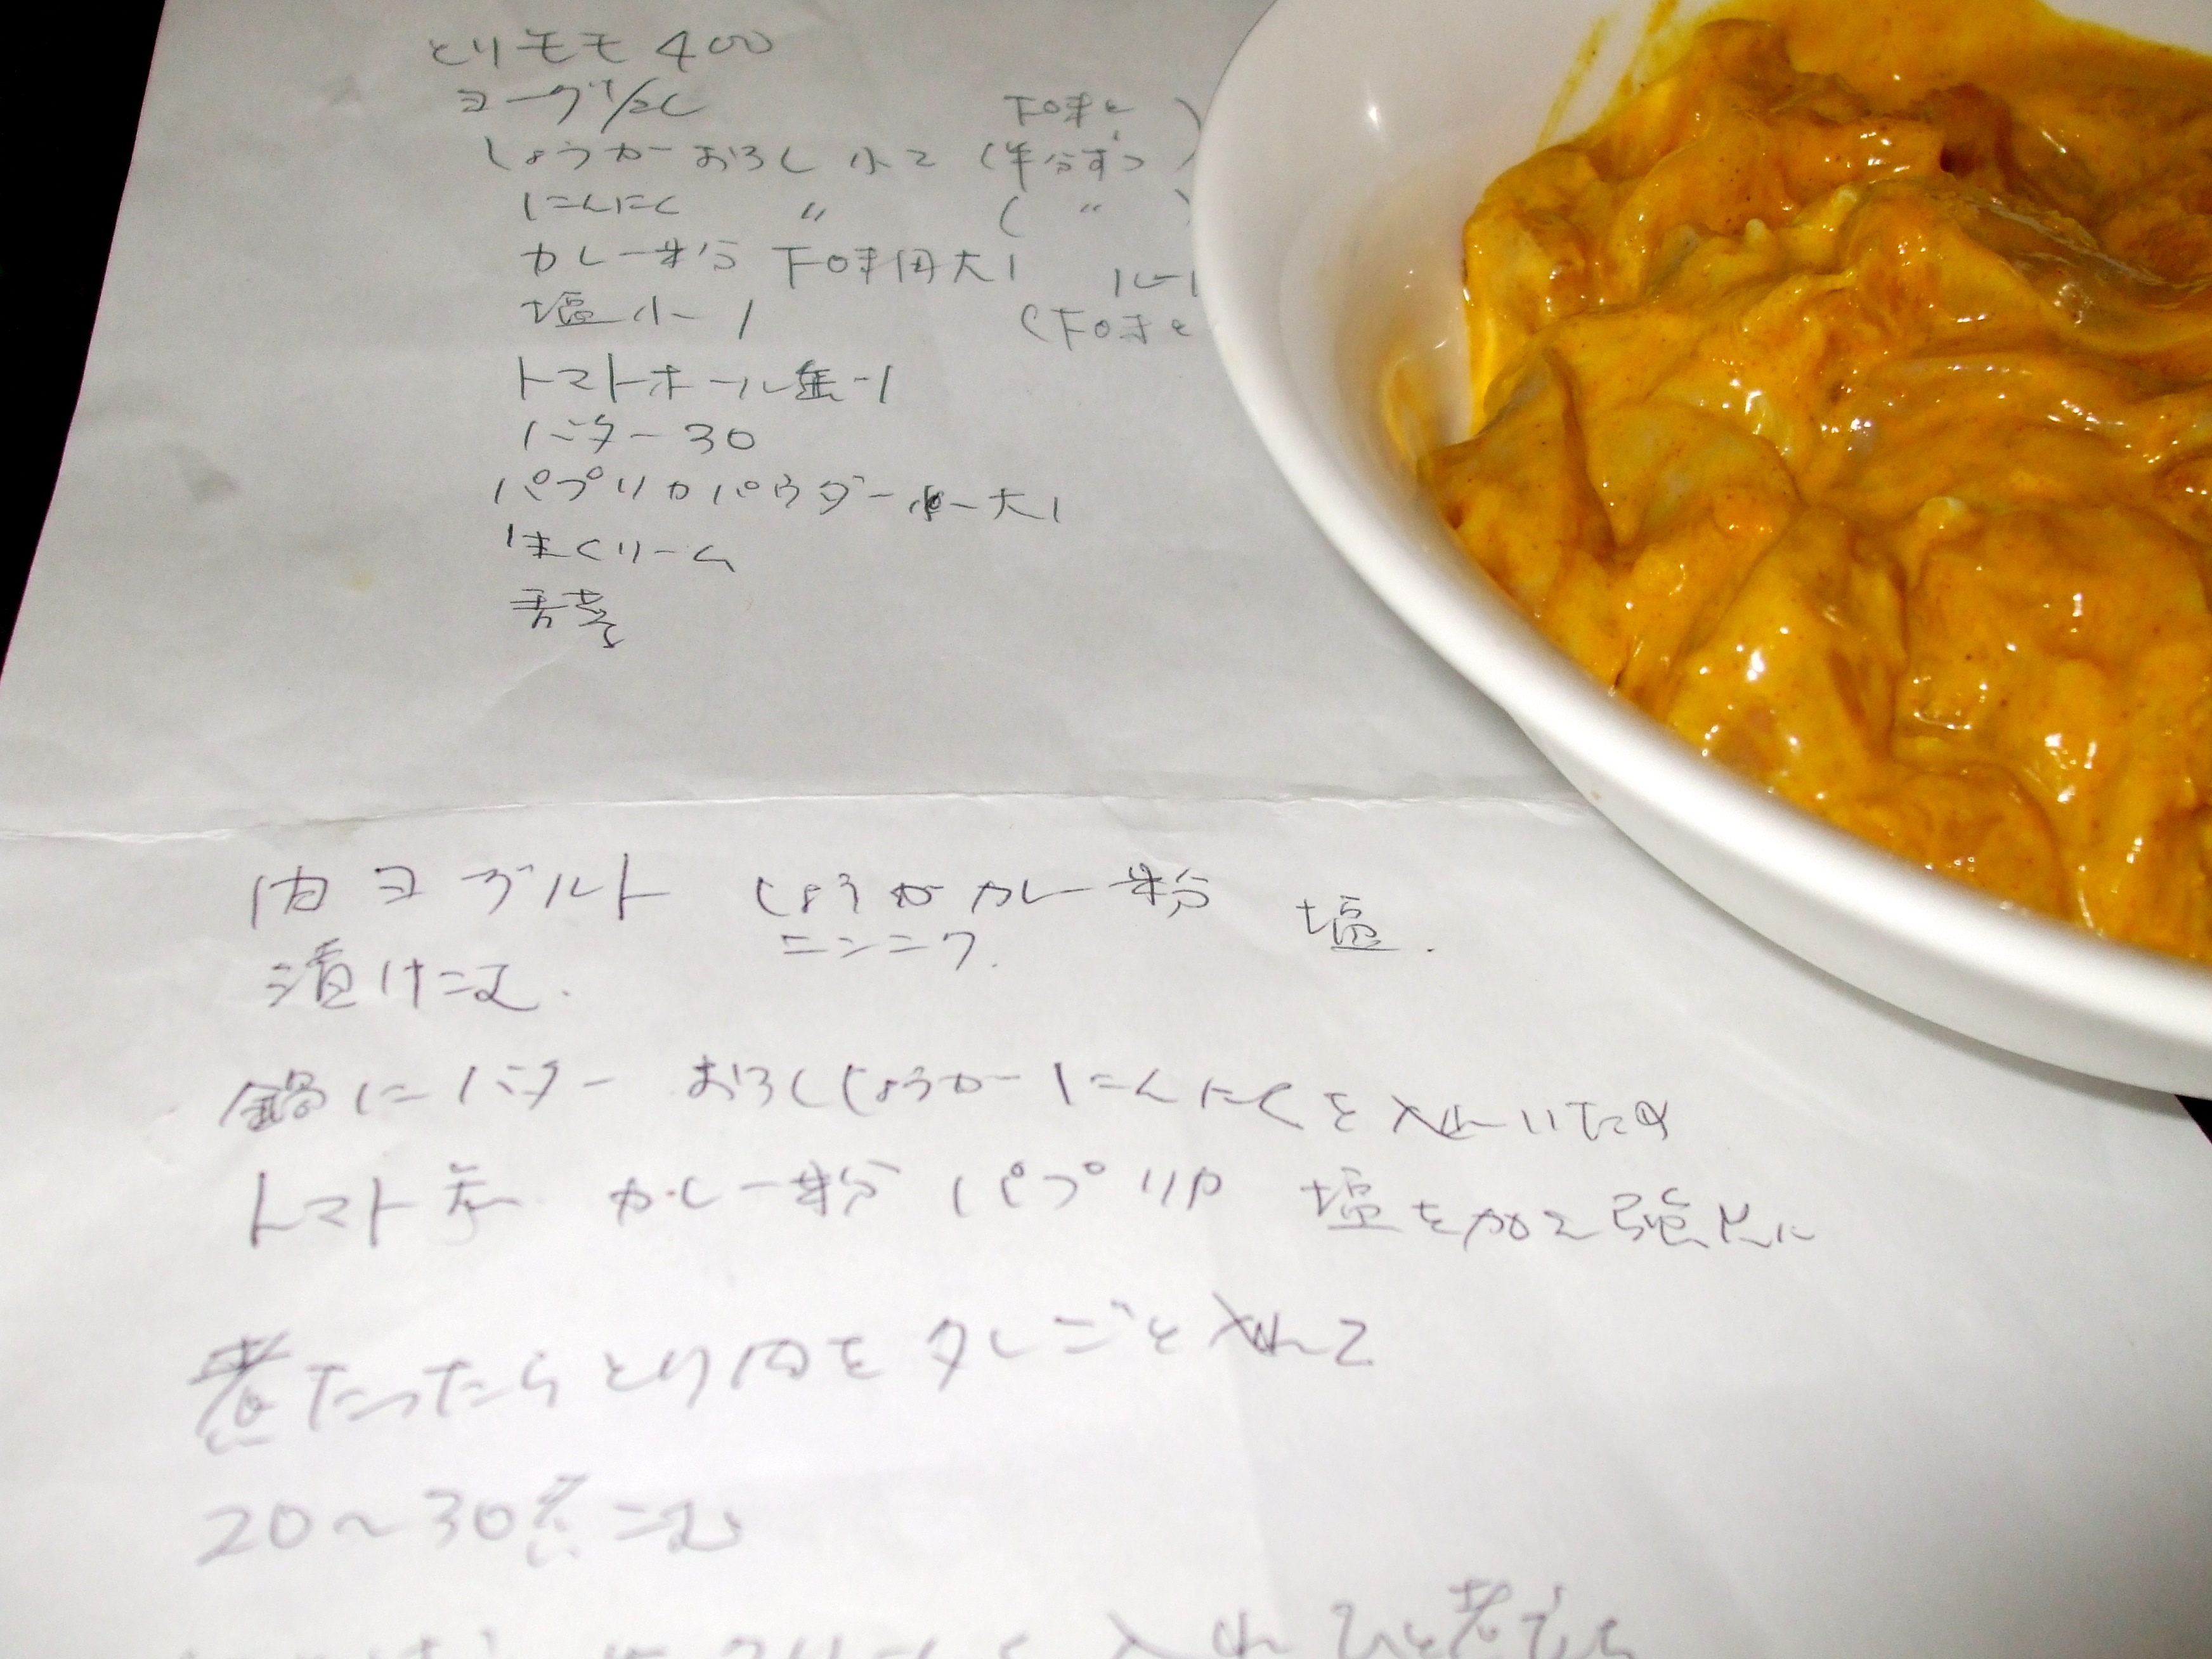 とりモモ 400
ヨーグ 1/2C
しょうがおろし 小2 (半分ずつ)
下味と )
にんにく 〃 ( 〃 )
カレー粉 下味用大1 ルー
塩小-1 (下味と
トマトホール缶-1
バター30
パプリカパウダー 大1
生クリーム
香菜
肉ヨーグルト しょうがカレー粉 塩.
ニンニク.
漬けこむ.
鍋にバター おろししょうが にんにくを入れいため
トマト缶 カレー粉 パプリカ 塩を加え強火に
煮たったらとり肉をタレごと入れて
20〜30煮こむ
クリーム 入れ ひと煮たち